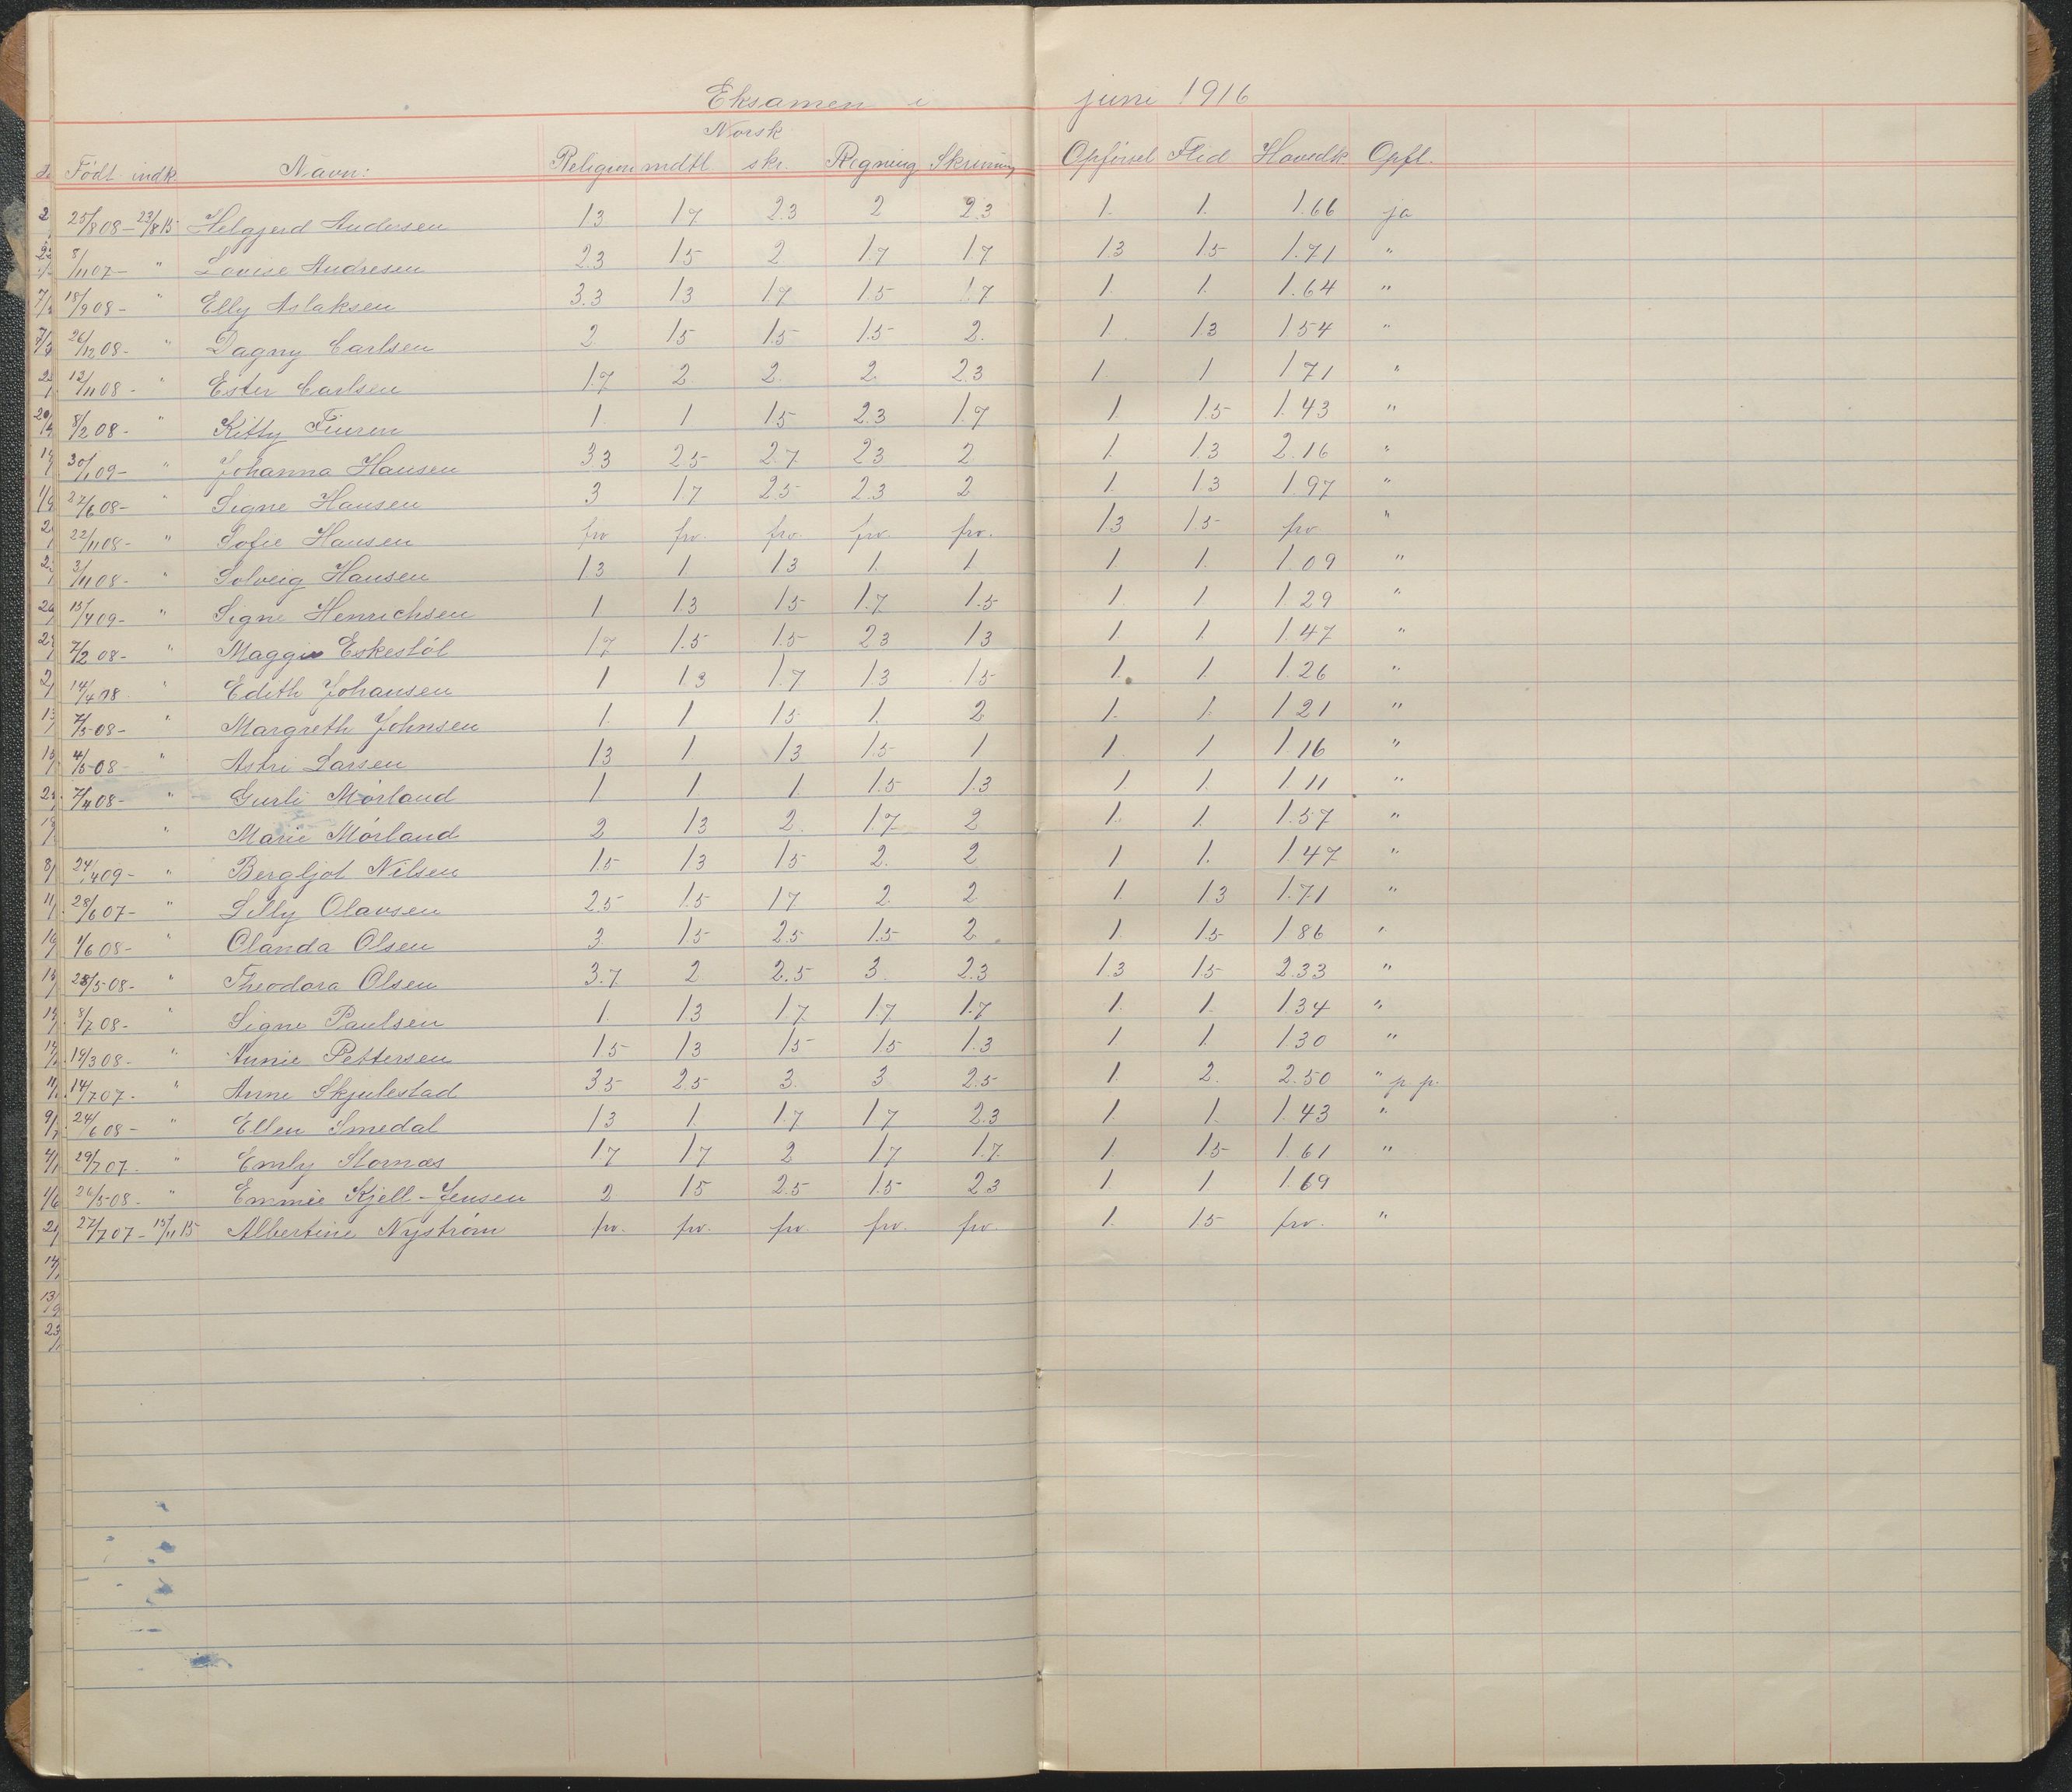 Eksamen i juni 1916
Norsk
Født indk. Navn: Religion mdtl skr. Regning Skrivning Opførsel Flid Hovedk Opfl.
25/8 08 - 23/8 15 Helgjerd Andersen 1.3 1.7 2.3 2 2.3 1. 1. 1.66 ja
8/11 07 - " Lovise Andresen 2.3 1.5 2 1.7 1.7 1.3 1.5 1.71 "
18/9 08 - " Elly Aslaksen 3.3 1.3 1.7 1.5 1.7 1. 1. 1.64 "
26/12 08 - " Dagny Carlsen 2 1.5 1.5 1.5 2. 1. 1.3 1.54 "
12/11 08 - " Ester Carlsen 1.7 2. 2. 2. 2.3 1. 1 1.71 "
8/2 08 - " Kitty Fiuren 1. 1 1.5 2.3 1.7 1. 1.5 1.43 "
30/1 09 - " Johanna Hansen 3.3 2.5 2.7 2.3 2 1. 1.3 2.16 "
27/6 08 - " Signe Hansen 3 1.7 2.5 2.3 2 1. 1.3 1.97 "
22/11 08 - " Sofie Hansen frv frv. frv. frv. frv. 1.3 1.5 frv. "
3/11 08 - " Solveig Hansen 1.3 1. 1.3 1. 1 1. 1. 1.09 "
15/4 09 - " Signe Henrichsen 1 1.3 1.5 1.7 1.5 1. 1. 1.29 "
7/2 08 - " Maggie Eskestøl 1.7 1.5 1.5 2.3 1.3 1 1 1.47 "
14/4 08 " Edith Johansen 1 1.3 1.7 1.3 1.5 1. 1. 1.26 "
7/5 08 - " Margreth Johnsen 1. 1 1.5 1. 2 1. 1. 1.21 "
4/5 08 - " Astri Larsen 1.3 1 1.3 1.5 1 1. 1 1.16 "
7/4 08 - " Gurli Mørland 1 1 1. 1.5 1.3 1 1. 1.11 "
" Marie Mørland 2 1.3 2. 1.7 2 1. 1. 1.57 "
24/4 09 - " Bergljot Nilsen 1.5 1.3 1.5 2. 2 1 1. 1.47 "
28/6 07 - " Lilly Olavsen 2.5 1.5 1.7 2 2. 1. 1.3 1.71 "
1/6 08 - " Olanda Olsen 3. 1.5 2.5 1.5 2. 1. 1.5 1.86 "
28/5 08 - " Theodora Olsen 3.7 2 2.5 3. 2.3 1.3 1.5 2.33 "
8/7 08 - " Signe Paulsen 1. 1.3 1.7 1.7 1.7 1. 1. 1.34 "
19/3 08 - " Annie Pettersen 1.5 1.3 1.5 1.5 1.3 1 1. 1.30 "
14/7 07 - " Anne Skjulestad 3.5 2.5 3. 3 2.5 1. 2. 2.50 " p.p.
24/6 08 - " Ellen Smedal 1.3 1 1.7 1.7 2.3 1. 1. 1.43 "
29/7 07 - " Emly Stornæs 1.7 1.7 2 1.7 1.7 1. 1.5 1.61 "
26/5 08 - " Emmie Kjell-Jensen 2 1.5 2.5 1.5 2.3 1 1 1.69
27/7 07 - 15/11 15 Albertine Nystrøm frv. frv. frv. frv. frv. 1. 1.5 frv. "